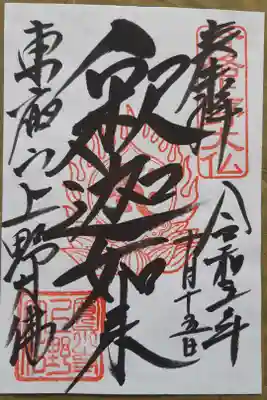 奉拝
令和五年
十月十五日
釈迦如来
東叡山上野大佛